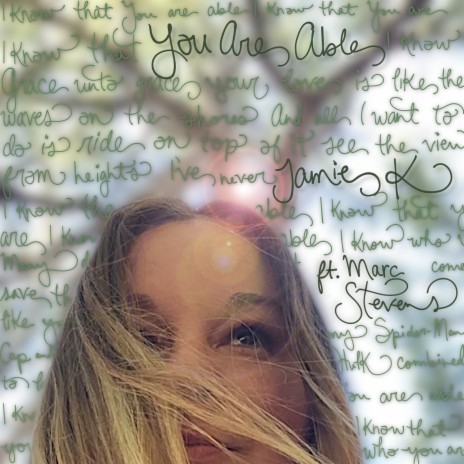 I know that You are able I know that You are
I know that You Are Able I know
Grace unto grace your love is like the
waves on the shores And all I want to
do is ride on top of it see the view
from heights I've never Jamie K
I know the able I know that y
are I know able I know who i
ft. Marc come
save th Stevens
like yo my Spider-Man
Cap an Hulk combined
to b ou are able
I kno I know that
you who you are